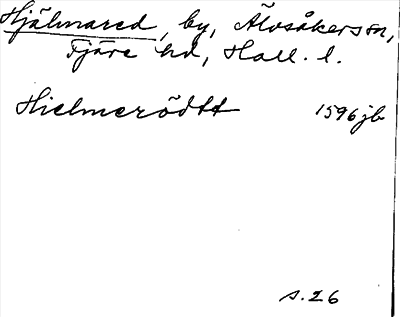 Hjälmared, by, Älvsåkers sn,
Fjäre hd, Hall. l.
Hielmerödtt 1596 jb
s. 26